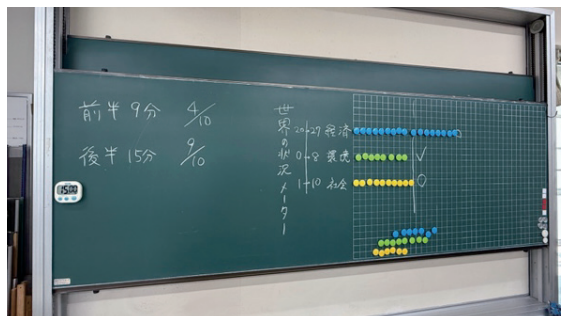 前半 9分 4/10
後半 15分 9/10
世界の状況メーター
20→27 経済
0→8 環境 ✓
1→10 社会 ○
15:00